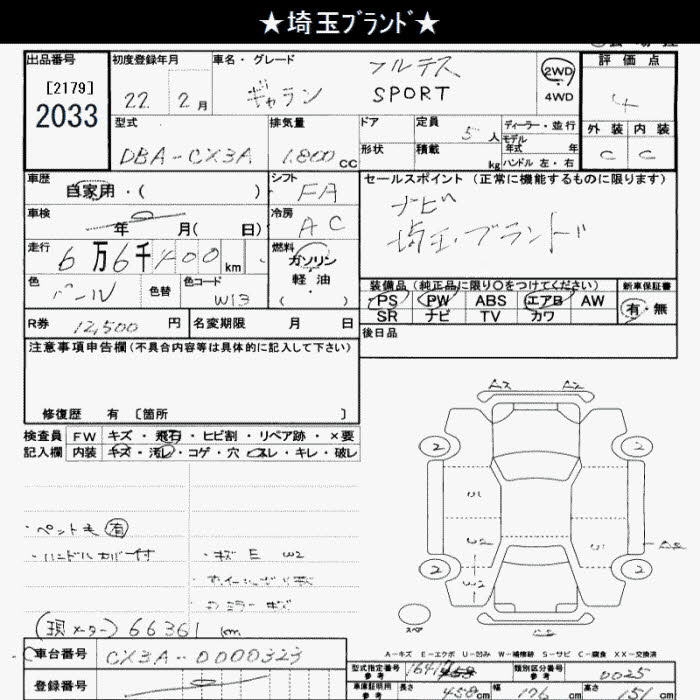 ★埼玉ﾌﾞﾗﾝﾄﾞ★
出品番号 初度登録年月 車名・グレード 評価点
[2179] 2033
22 2月 ギャラン フルテス SPORT 2WD 4WD 4
型式 排気量 ドア 定員 5人 ディーラー・並行 外装 内装
DBA-CX3A 1.800 CC 形状 積載 kg モデル年式 年 ハンドル 左・右 C C
車歴 自家用・( ) シフト FA セールスポイント (正常に機能するものに限ります)
車検 年 月( 日) 冷房 AC ナビ
走行 6万6千400km 燃料 ガソリン 軽油 ( ) 埼玉・ブランド
色 パール 色替 色コード W13
装備品 (純正品に限り〇をつけてください) 新車保証書
PS PW ABS エアB AW 有・無
SR ナビ TV カワ
R券 12,500 円 名変期限 月 日 後日品
注意事項申告欄(不具合内容等は具体的に記入して下さい)
修復歴 有 〔箇所 〕
検査員 FW キズ・飛石・ヒビ割・リペア跡・×要
記入欄 内装 キズ・汚レ・コゲ・穴・スレ・キレ・破レ
・ペット毛 有
・ハンドルカバー付 ・キズ E W2
・ミラーキズ
(現メーター) 66361 km
A2 A2
2 2
W2
W2
2 2
スペア
A-キズ E-エクボ U-凹み W-補修跡 S-サビ C-腐食 XX-交換済
車台番号 CX3A-0000323
型式指定番号 参考 16417 類別区分番号 参考 0025
登録番号
車庫証明用 参考 長さ 458cm 幅 176cm 高さ 151cm